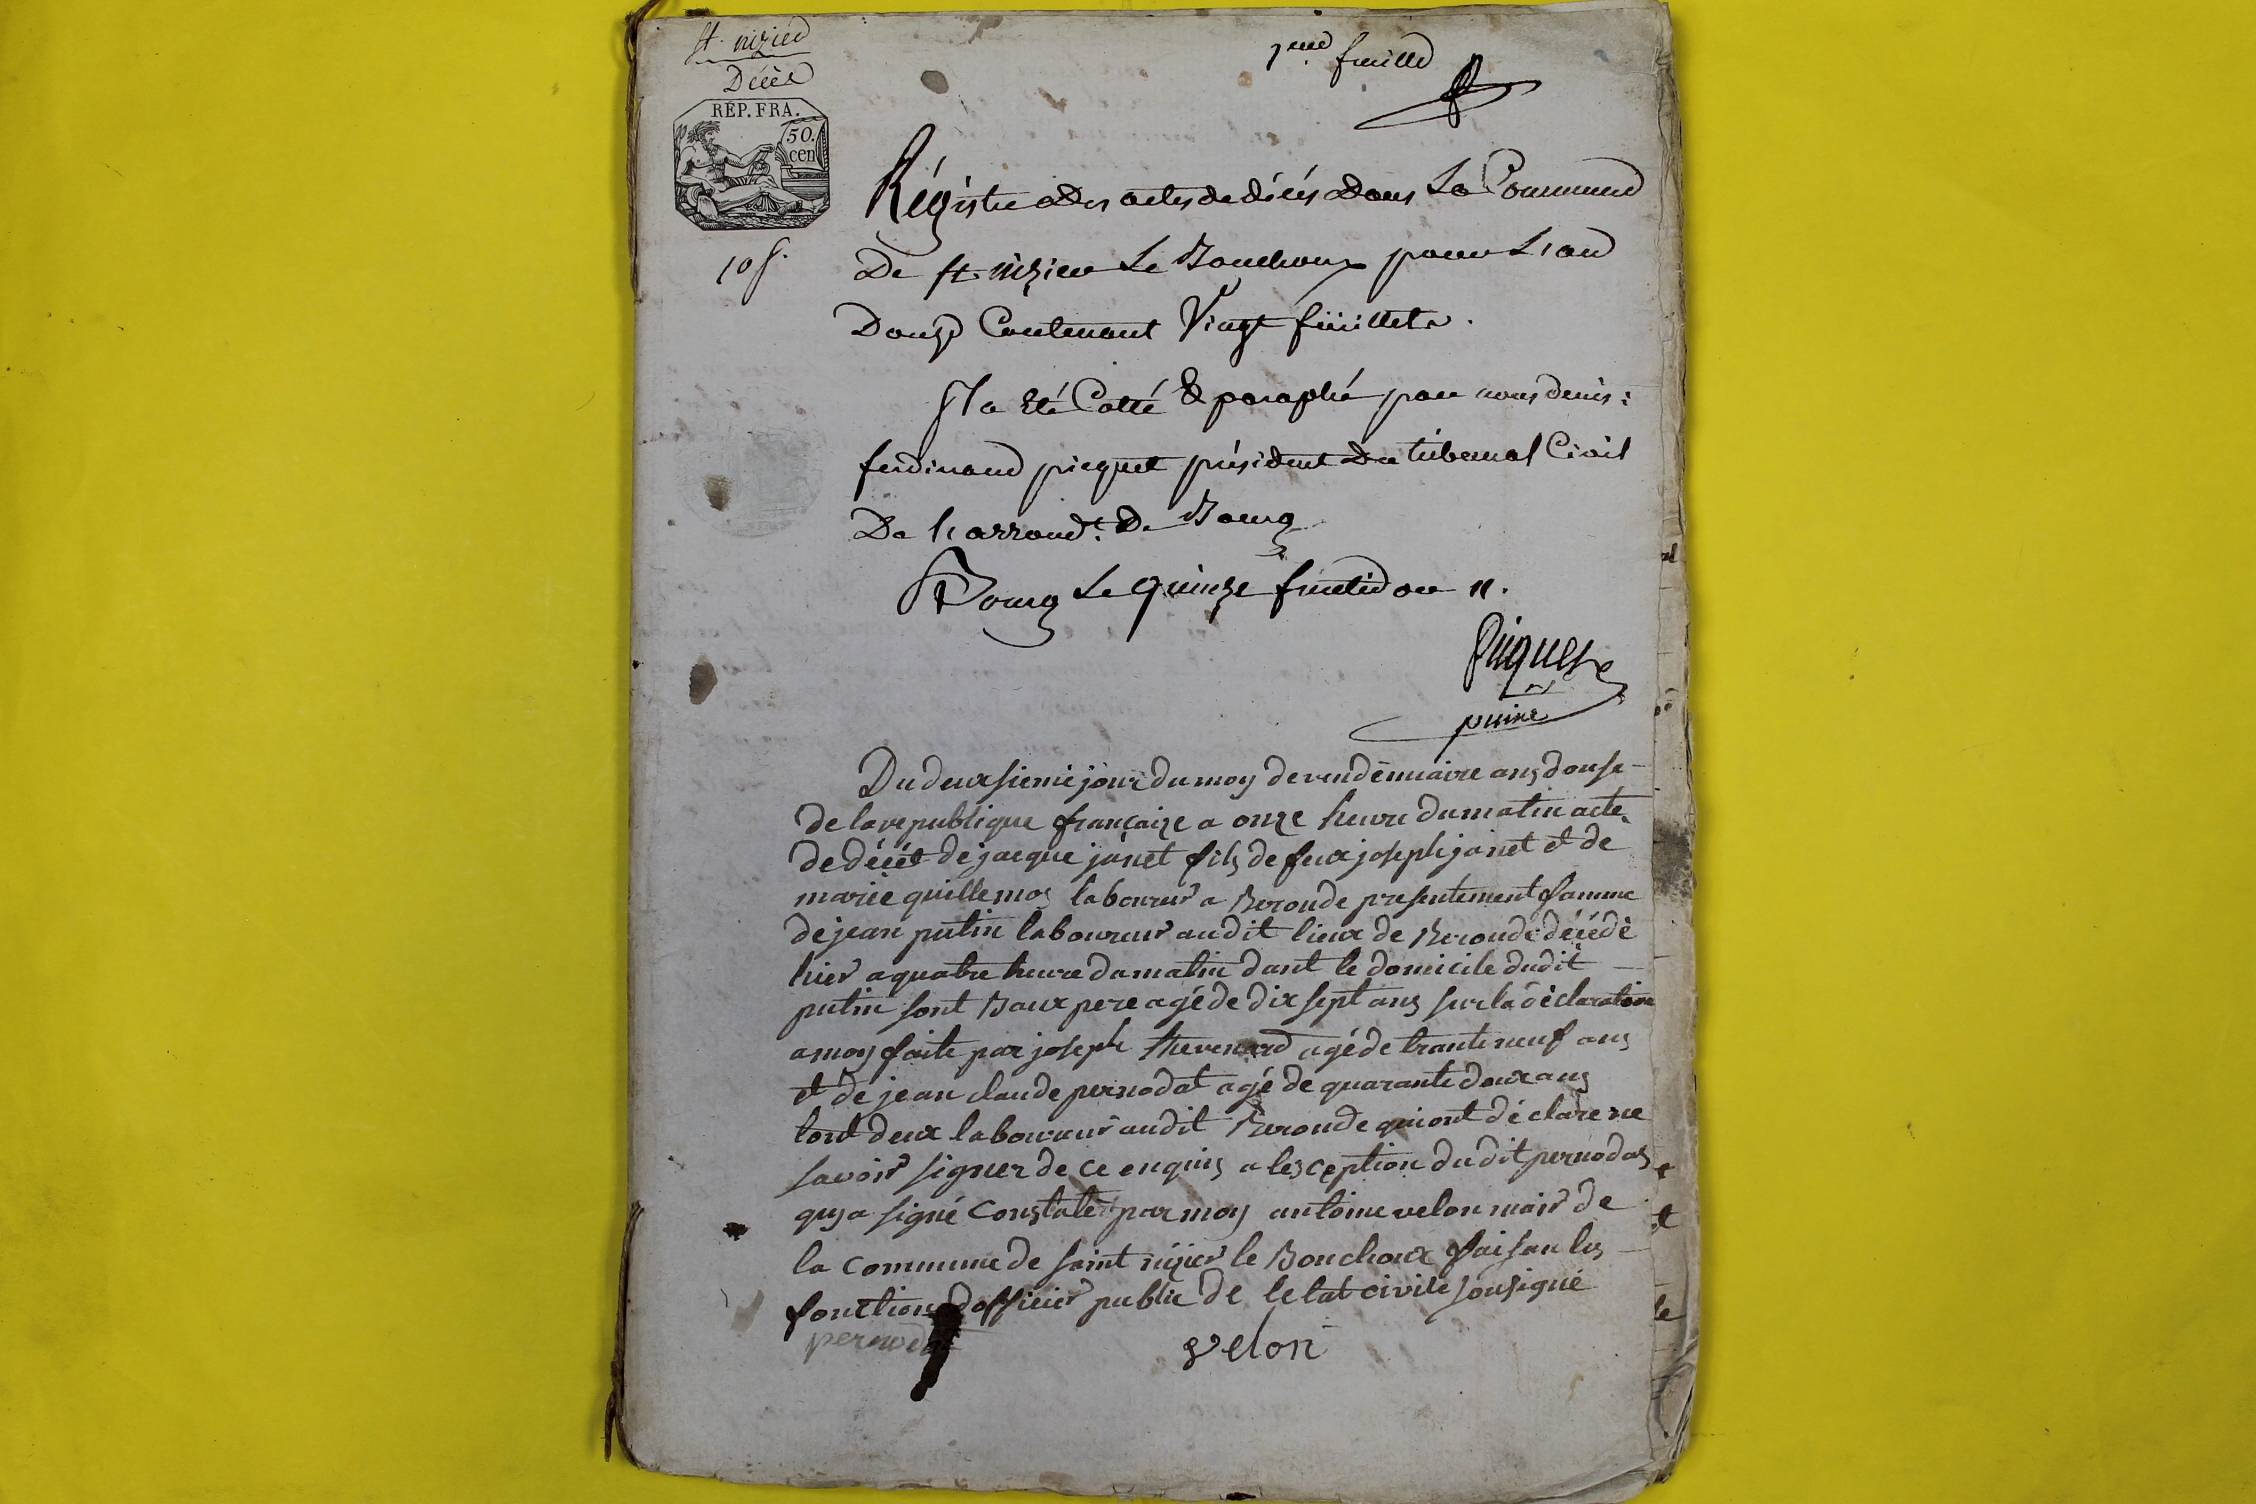 St. nizier
Décès
1ere feuille
RÉP. FRA.
50.
cen
10 f.
Régistre Des actes de décès Dans La Commune
De St. nizier Le Bouchoux pour L'an
Douze Contenant Vingt feuillets.
Il a été Cotté & paraphé par nous denis:
ferdinand picquet président Du tribunal Civil
De l'arrondt. De Bourg
Bourg Le quinze fructidor 11.
Picquet
puiné
Du deuxsieme jour du moy de vendémiaire ans douse
de la republique françaize a onze heure du matin acte
de décét de jacque janet fils de feux joseph janet et de
marie guillemos laboureur a Beronde presentement famme
de jean putin laboureur audit lieux de Beronde décédé
hier a quatre heure du matin dant le domicile dudit
putin sont Baux pere agé de dix sept ans sur la déclaration
a moy faite par joseph thevenard agé de trante neuf ans
et de jean claude pernodat agé de quarante deux ans
tout deux laboureur audit Beronde qui ont déclare ne
savoir signer de ce enquis a lesception dudit pernodat
quy a signé Constaté par moy antoine velon mair de
la commune de saint nizier le Bouchoux faisan les
fonction dofficier public de letat civile sousigné
pernodat
velon